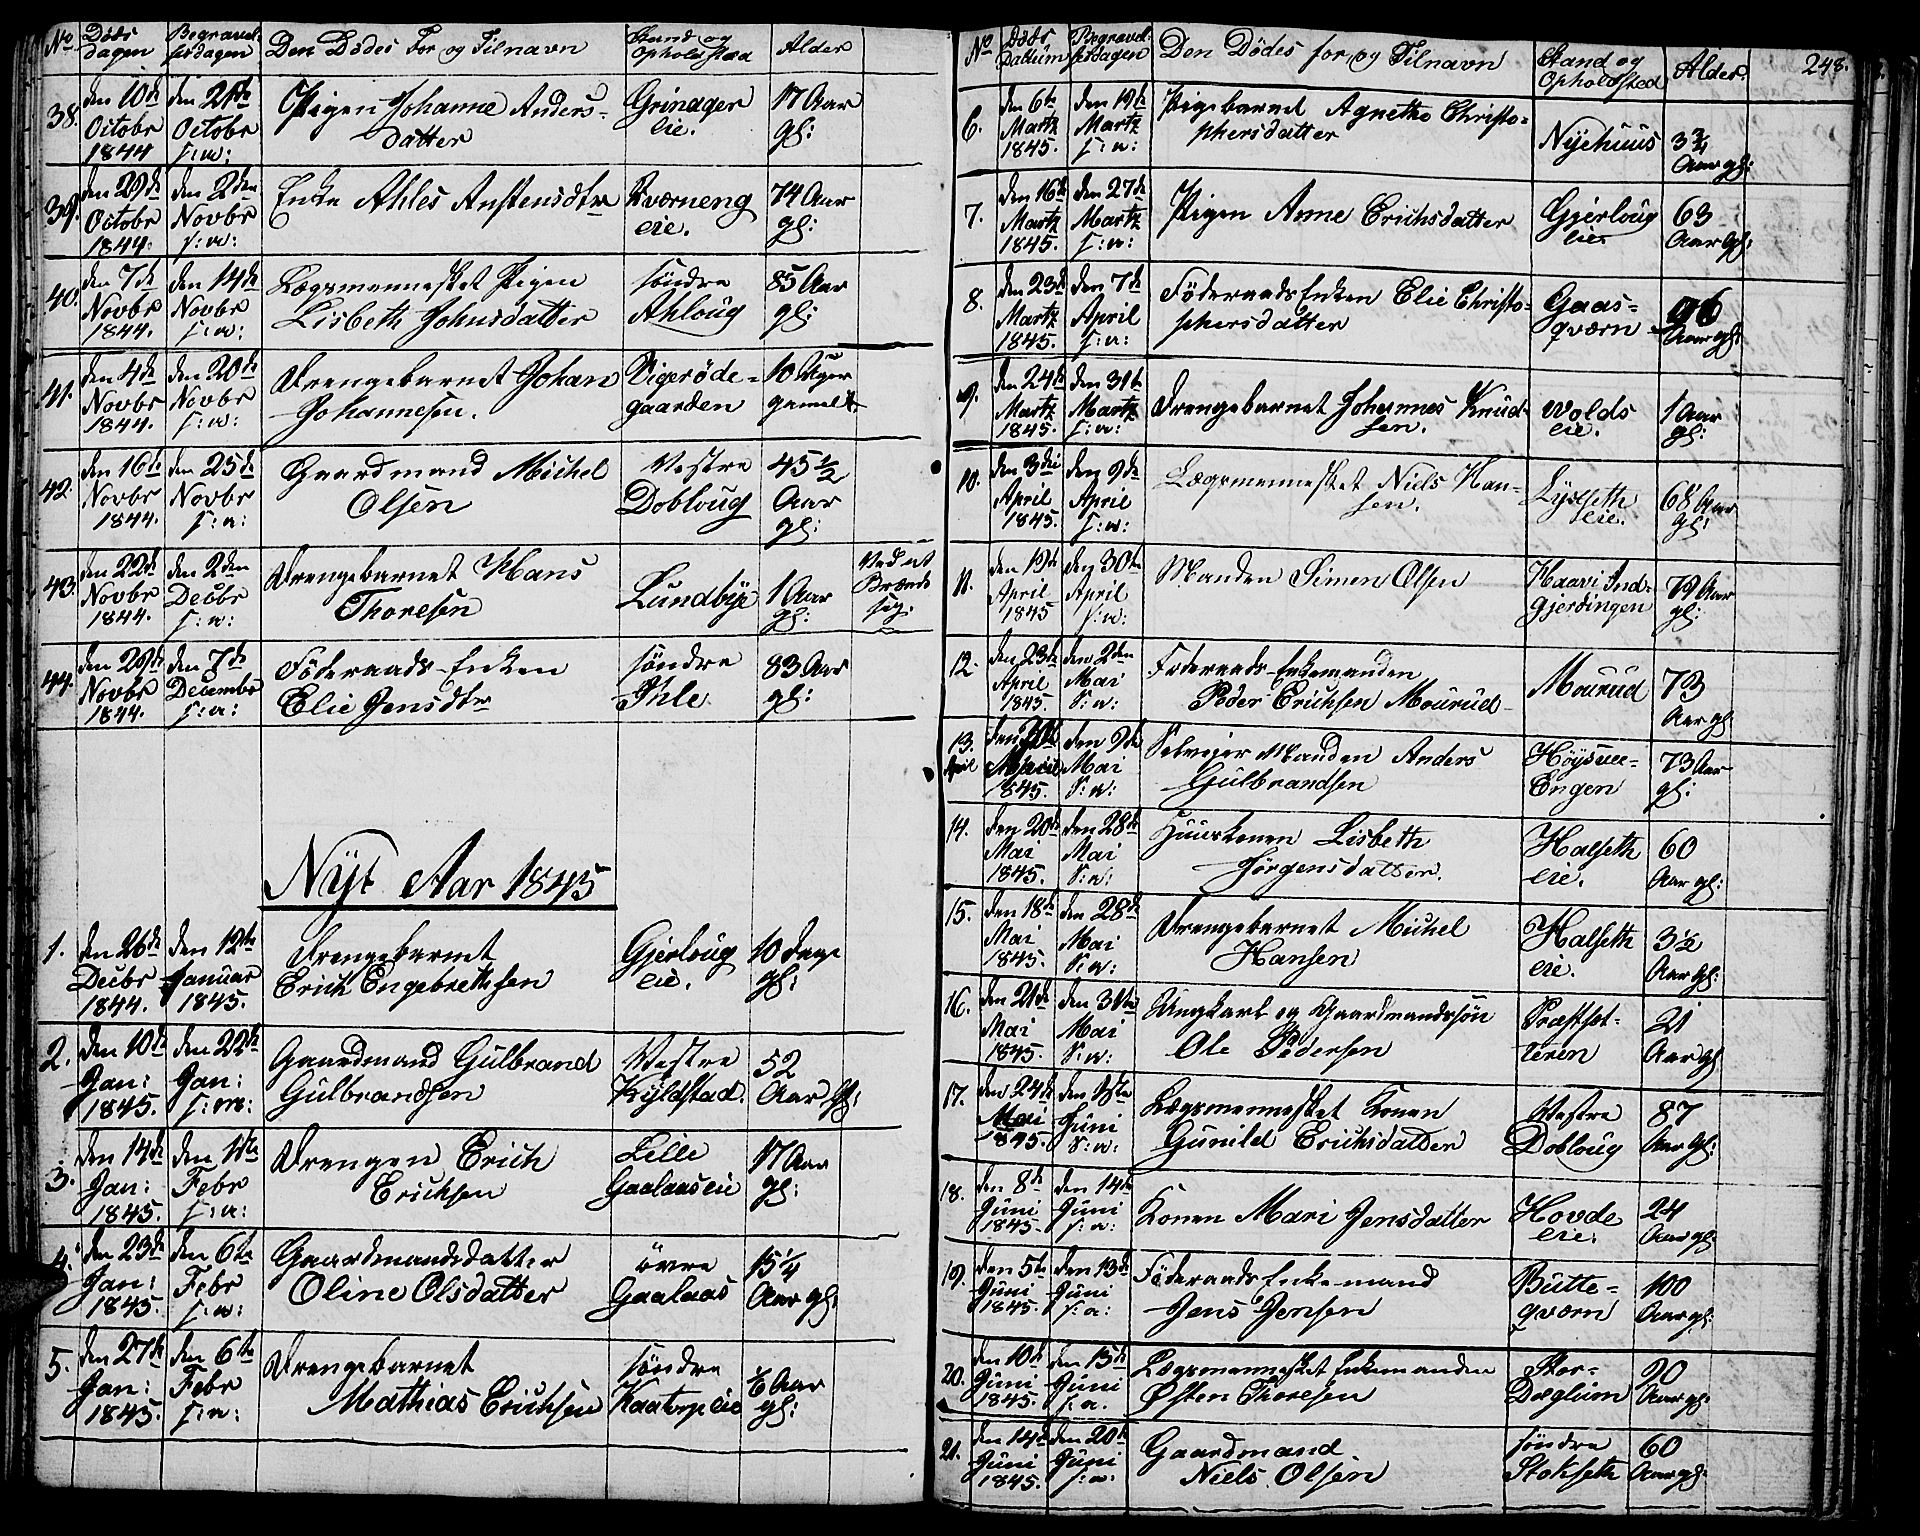 No Døds dagen Begravelsesdagen Den Dødes For og Tilnavn Stand og Opholdsted Alder
38. den 10de Octobr 1844 den 21de Octobr s: a: Pigen Johanne Anders-
datter Grinager eie. 17 Aar gl:
39. den 29de Octobr 1844. den 2den Novbr s: a: Enke Ahles Anstensdtr Kværneng eie. 74 Aar gl:
40. den 7de Novbr 1844. den 14de Novbr s: a: Lægsmennesket Pigen
Lisbeth Johnsdatter søndre Ahloug 85 Aar gl:
41. den 4de Novbr 1844. den 20de Novbr s: a: Drengebarnet Johan
Johannesen. Vigerøde-
gaarden 10 Uger gamelt
42. den 16de Novbr 1844. den 25de Novbr s: a: Gaardmand Michel
Olsen Vestre Dobloug 45 1/2 Aar gl:
43. den 22de Novbr 1844. den 2den Decbr s: a: Drengebarnet Hans
Thoresen Lundbye 1 Aar gl: Ved at Brænde sig.
44. den 29de Novbr 1844. den 7de Decembr s: a: Föderaads-Enken
Elie Jensdtr søndre Ihle. 83 Aar gl:
Nyt Aar 1845
1. den 26de Decbr 1844. den 12te Januar 1845. Drengebarnet
Erich Engebrethsen Gjerloug eie. 10 dage gl:
2. den 10de Jan: 1845. den 22de Jan: s: a: Gaardmand Gulbrand
Gulbrandsen Vestre Kyldstad. 52 Aar gl:
3. den 14de Jan: 1845. den 1te Febr s: a: Drengen Erich
Erichsen Lille Gaalaas eie 17 Aar gl:
4. den 23de Jan: 1845. den 6te Febr s: a: Gaardmandsdatter
Oline Olsdatter øvre Gaalaas 15 1/4 Aar gl:
5. den 27de Jan: 1845. den 6te Febr s: a: Drengebarnet
Mathias Erichsen søndre Kaatorp eie 1/6 Aar gl:
No Døds Datum Begravelsesdagen Den Dödes for og Tilnavn Stand og Opholdsted Alder. 248.
6. den 6te Martz 1845. den 19de Martz s: a: Pigebarnet Agnethe Christo-
phersdatter Nyehuus 3 3/4 Aar gl:
7. den 16de Martz 1845. den 27de Martz s: a: Pigen Anne Erichsdatter Gjerloug eie. 63 Aar gl:
8. den 23de Martz 1845. den 7de April s: a: Föderaads Enken Elie Christo-
phersdatter Gaas-
qværn 76 Aar gl:
9. den 24de Martz 1845. den 31te Martz s: a: Drengebarnet Johannes Knud-
sen. Wolds eie. 1 Aar gl:
10. den 3die April 1845. den 9de April s: a: Lægsmennesket Niels Han-
sen. Lysseth eie. 68 Aar gl:
11. den 19de April 1845 den 30te April s: a: Manden Simen Olsen Haavi Ind-
gjerdingen 79 Aar gl:
12. den 23de April 1845. den 2den Mai S: a: Föderaads-Enkemanden
Peder Erichsen Mourud Mourud 73 Aar gl:
13. April 1845. den 9de Mai S: a: Selveier Manden Anders
Gulbrandsen Höysvee-
Engen 73 Aar gl:
14. den 20de Mai 1845. den 28de Mai S: a: Huuskonen Lisbeth
Jörgensdatter. Halseth eie. 60 Aar gl:
15. den 18de Mai 1845. den 28de Mai S: a: Drengebarnet Michel
Hansen Halseth eie. 3 1/2 Aar gl:
16. den 21de Mai 1845. den 31te Mai S: a: Ungkarl og Gaardmandssøn
Ole Pedersen Præstset-
teren 21 Aar gl
17. den 24de Mai 1845. den 1ste Juni S: a: Lægsmennesket Konen
Gunild Erichsdatter Vestre Dobloug 87 Aar gl:
18. den 8de Juni 1845. den 14de Juni s: a: Konen Mari Jensdatter Hovde eie. 24 Aar gl:
19. den 5te Juni 1845. den 13de Juni s: a: Föderaads Enkemand
Jens Jensen Butte-
qværn 100 Aar gl:
20. den 10de Juni 1845. den 15de Juni s: a. Lægsmennesket Enkemanden
Østen Thoresen Stor-
Dæglum 90 Aar gl:
21. den 14de Juni 1845. den 20de Juni s: a: Gaardmand
Niels Olsen søndre Stokseth 60 Aar gl: